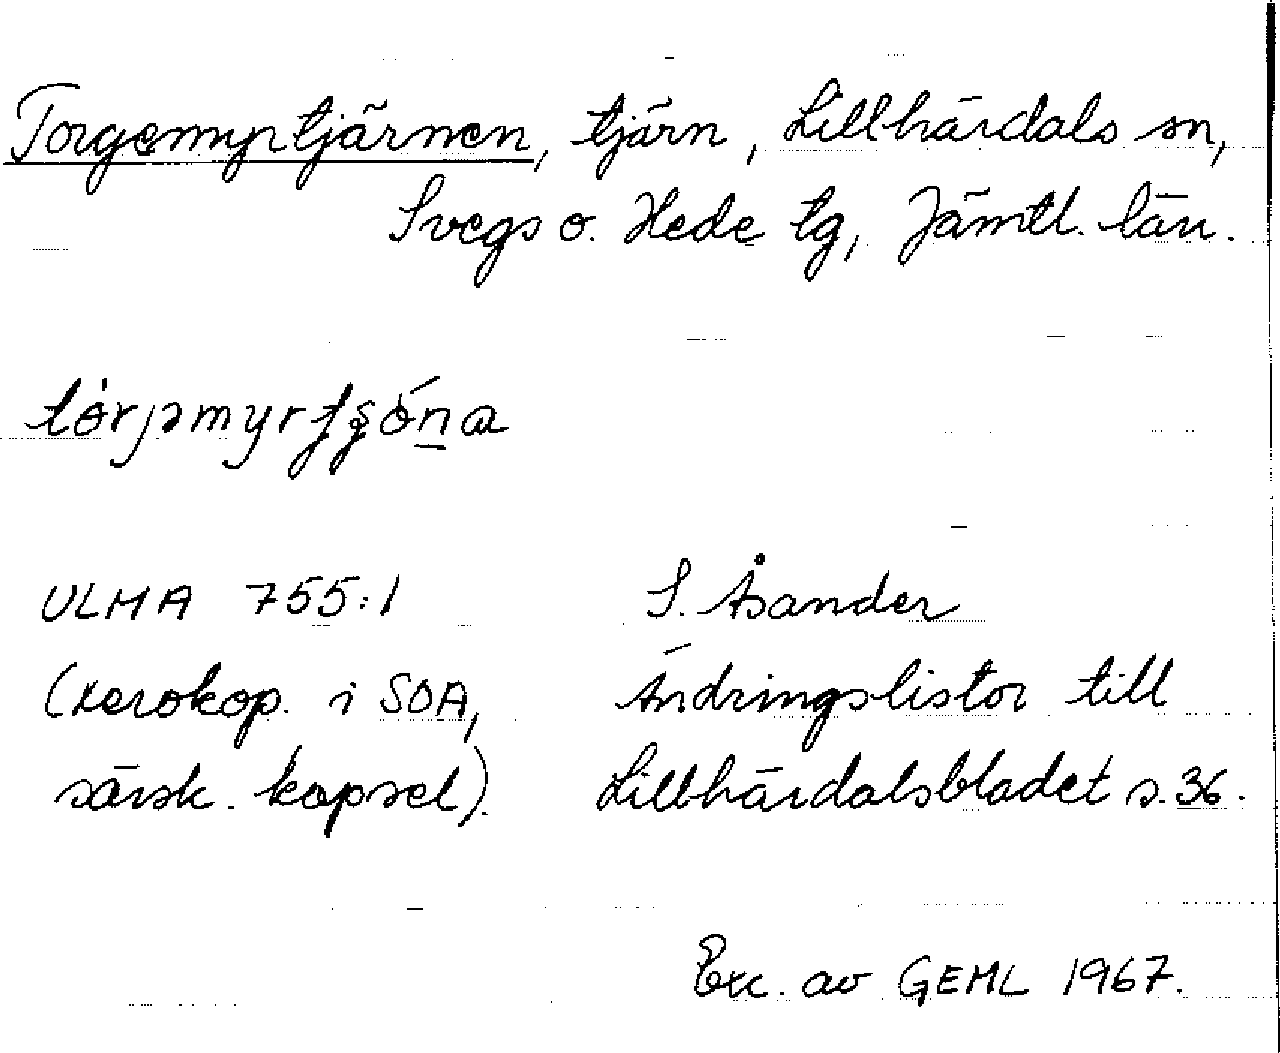 Torgemyrtjärnen, tjärn, Lillhärdals sn,
Svegs o. Hede tg, Jämtl. län.
ULMA 755:1 S. Åsander
(xerokop. i SOA, Ändringslistor till
särsk. kapsel). Lillhärdalsbladet s. 36.
Exc. av GEHL 1967.